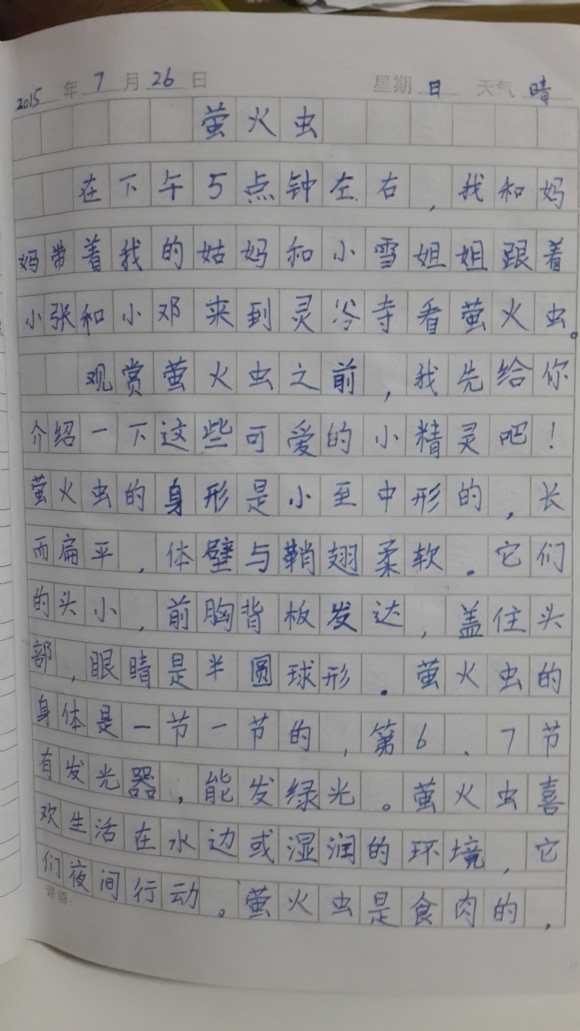 2015年7月26日 星期日 天气晴
萤火虫
在下午5点钟左右，我和妈
妈带着我的姑妈和小雪姐姐跟着
小张和小邓来到灵谷寺看萤火虫。
观赏萤火虫之前，我先给你
介绍一下这些可爱的小精灵吧！
萤火虫的身形是小至中形的，长
而扁平，体壁与鞘翅柔软。它们
的头小，前胸背板发达，盖住头
部，眼睛是半圆球形。萤火虫的
身体是一节一节的，第6、7节
有发光器，能发绿光。萤火虫喜
欢生活在水边或湿润的环境，它
们夜间行动。萤火虫是食肉的，
评语：